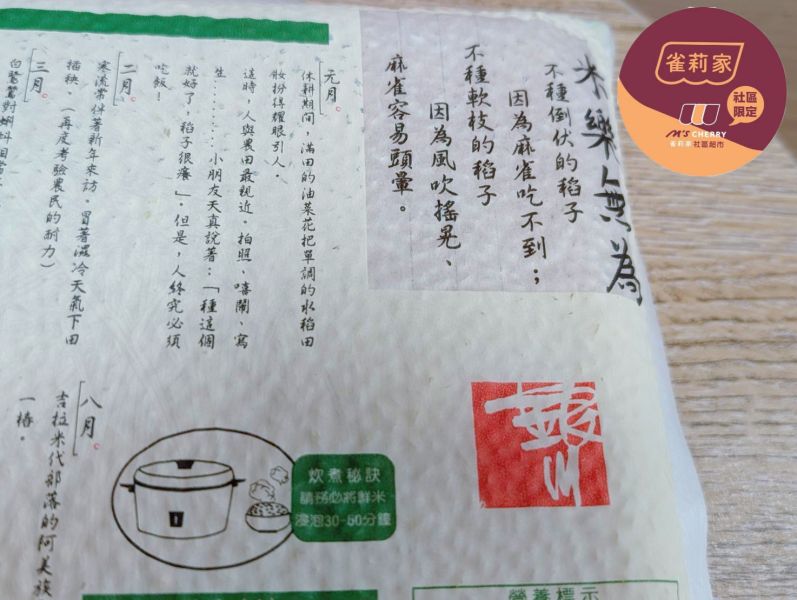 雀莉家
社區
限定
M'S CHERRY
雀莉家 社區超市
米樂無為
不種倒伏的稻子
因為麻雀吃不到；
不種軟枝的稻子
因為風吹搖晃、
麻雀容易頭暈。
元月。
休耕期間，滿田的油菜花把單調的水稻田
妝扮得耀眼引人。
這時，人與農田最親近。拍照、嘻鬧、寫
生………小朋友天真說著：「種這個
就好了，稻子很癢」。但是，人終究必須
吃飯！
二月。
寒流常伴著新年來訪。冒著濕冷天氣下田
插秧。（再度考驗農民的耐力）
三月。
白鷺鷥對蝌蚪
八月。
吉拉米代部落的阿美族
一樁。
銀川
炊煮秘訣
請務必將鮮米
浸泡30-60分鐘
營養標示